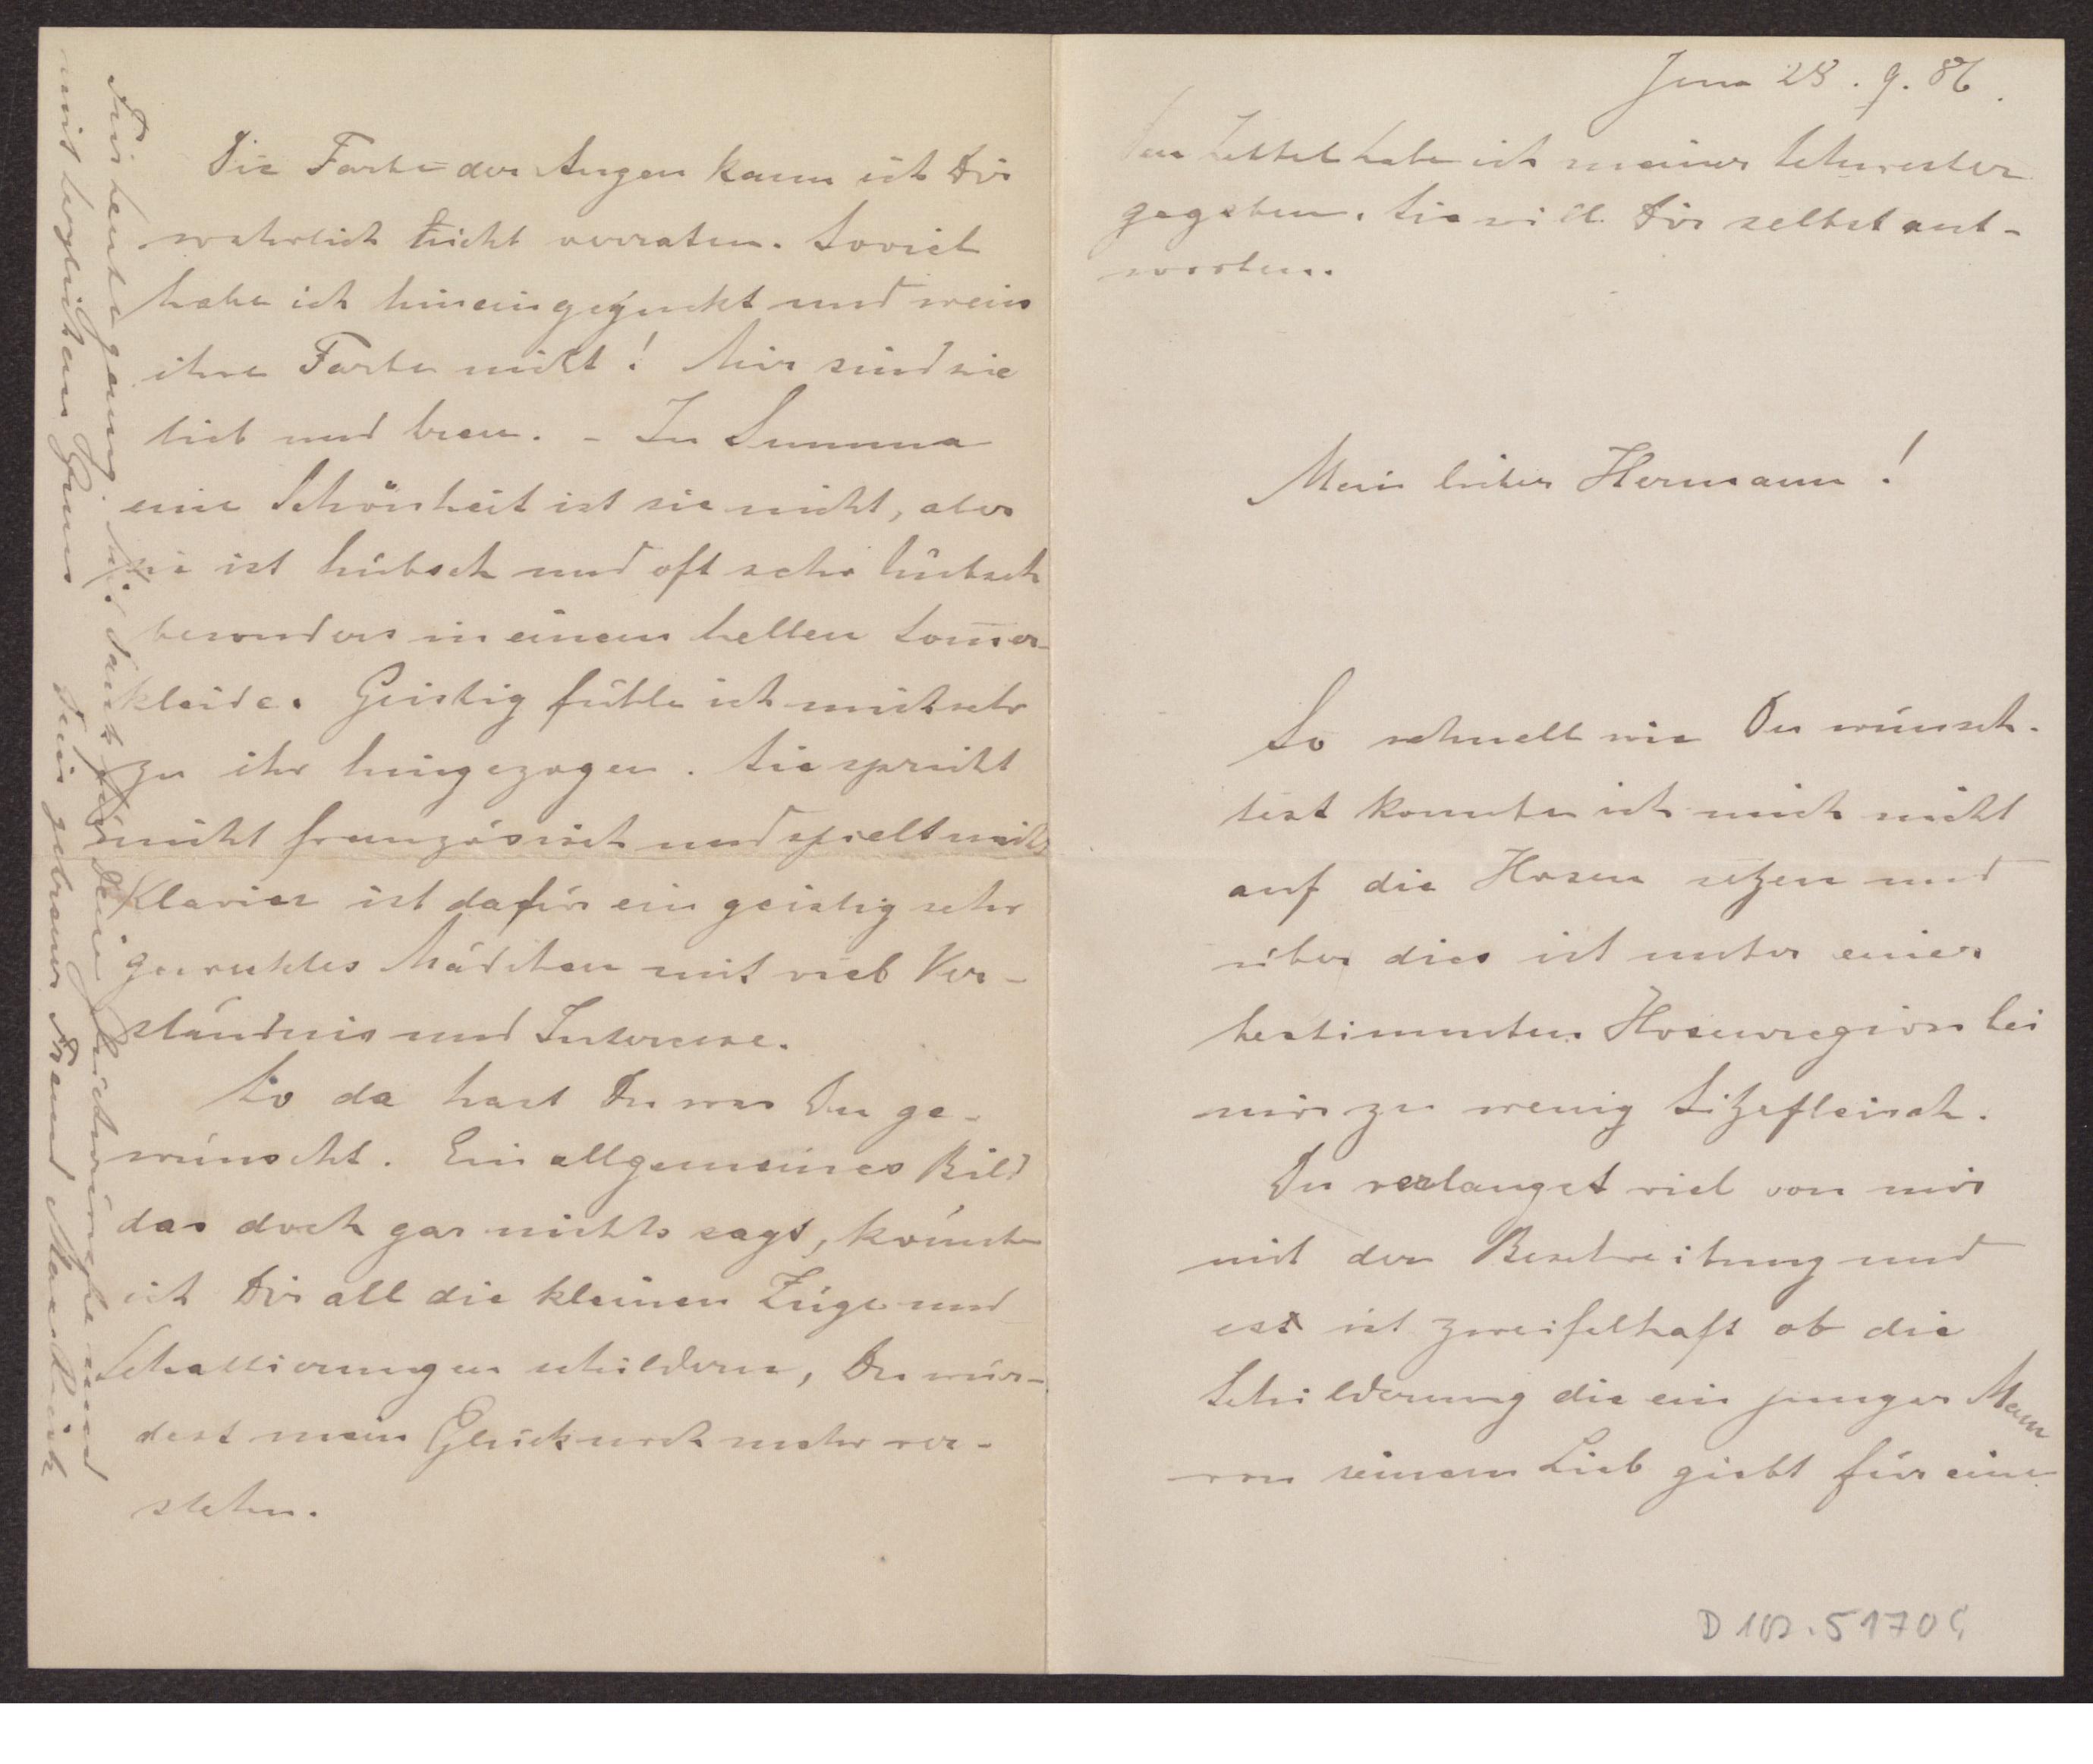 Jena 28. 9. 86.
Den Zettel habe ich meiner Schwester
gegeben. Sie will Dir selbst ant-
worten.
Mein lieber Hermann!
So schnell wie Du wünsch-
test konnte ich mich nicht
auf die Hosen setzen und
über dies ist unter einer
bestimmten Hosenregion bei
mir zu wenig Sitzefleisch.
Du verlangst viel von mir
mit der Beschreibung und
es ist zweifelhaft ob die
Schilderung die ein junger Mann
von seinem Lieb giebt für eine
D 102.5170
Die Farbe der Augen kann ich Dir
wahrlich nicht verraten. Soviel
habe ich hineingeguckt und weis
ihre Farbe nicht! Mir sind sie
lieb und treu. - In Summa
eine Schönheit ist sie nicht, aber
sie ist hübsch und oft sehr hübsch
besonders in einem hellen Som̄er-
kleide. Geistig fühle ich mich sehr
zu ihr hingezogen. Sie spricht
nicht französisch und spielt nicht
Klavier ist dafür ein geistig sehr
gewecktes Mädchen mit viel Ver-
ständnis und Interesse.
So da hast Du was Du ge-
wünscht. Ein allgemeines Bild
das doch gar nichts sagt, könnte
ich Dir all die kleinen Züge und
Schattierungen schildern, Du wür-
dest mein Glück noch mehr ver-
stehn.
Für heute genug. Dank für Deine Glückwünsche und
mit herzlichem Gruss
Dein getreuer Freund